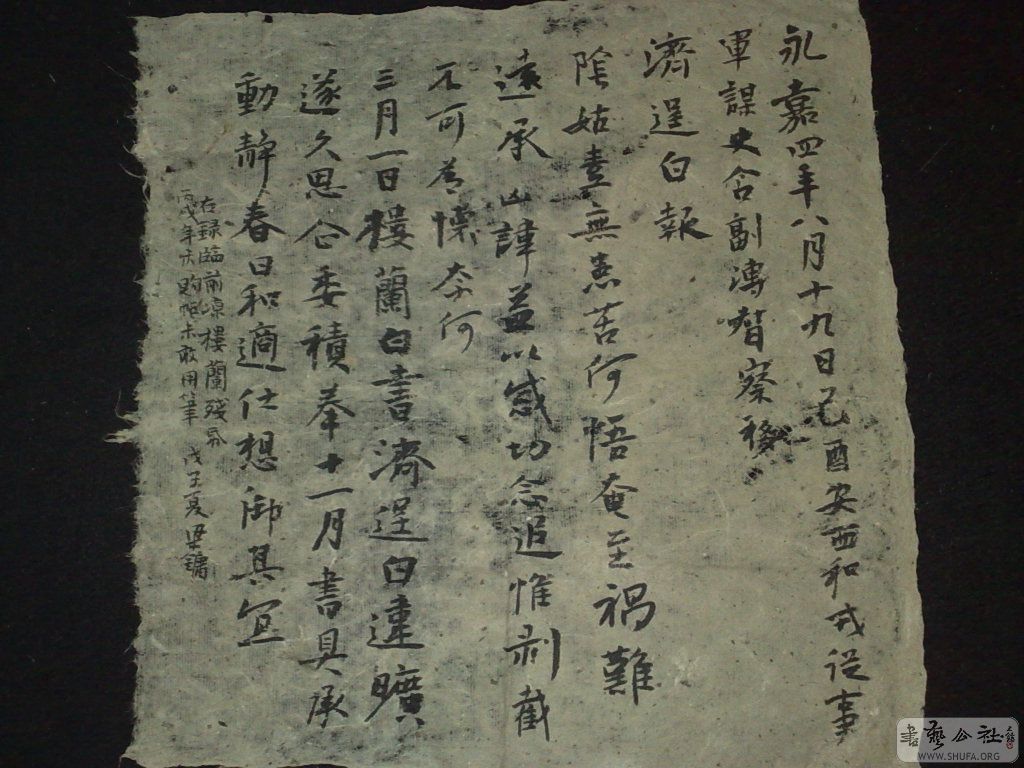 永嘉四年八月十九日己酉安西和戎從事
軍謀史令副溥督察移
濟逞白報
陰姑素無患苦何悟奄至禍難
遠承凶諱益以感切念追惟剥截
不可為懷奈何
三月一日樓蘭白書濟逞白違曠
遂久思企委積奉十一月書具承
動靜春日和適仕想御其宜
右錄臨前涼樓蘭殘帋
年未
未敢用筆 夏梁鏞
書藝公社
WWW.SHUFA.ORG